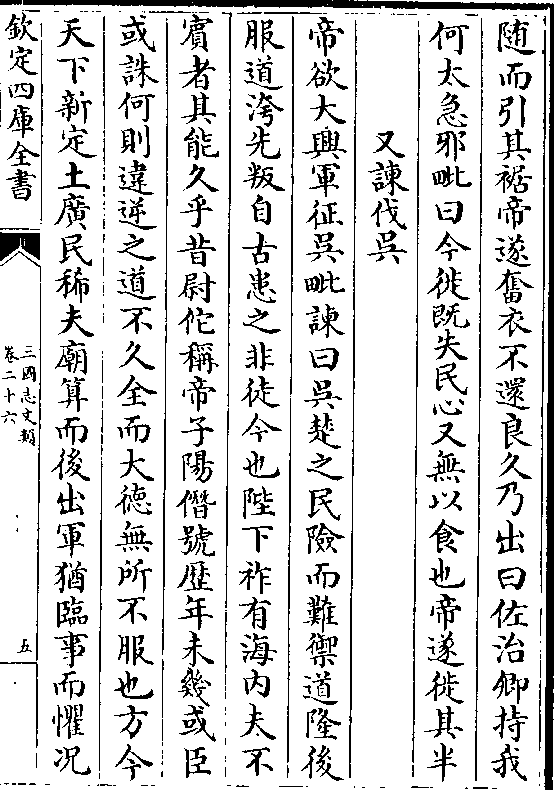 随而引其裾帝遂奮衣不還良久乃出曰佐治卿持我
何太急邪毗曰今徙既失民心又無以食也帝遂徙其半
又諫伐吳
帝欲大興軍征吳毗諫曰吳楚之民險而難禦道隆後
服道洿先叛自古患之非徒今也陛下祚有海内夫不
賔者其能久乎昔尉佗稱帝子陽僭號歴年未幾或臣
或誅何則違逆之道不久全而大德無所不服也方今
天下新定土廣民稀夫廟算而後出軍猶臨事而懼况
欽定四庫全書
三國志文類
卷二十六
五